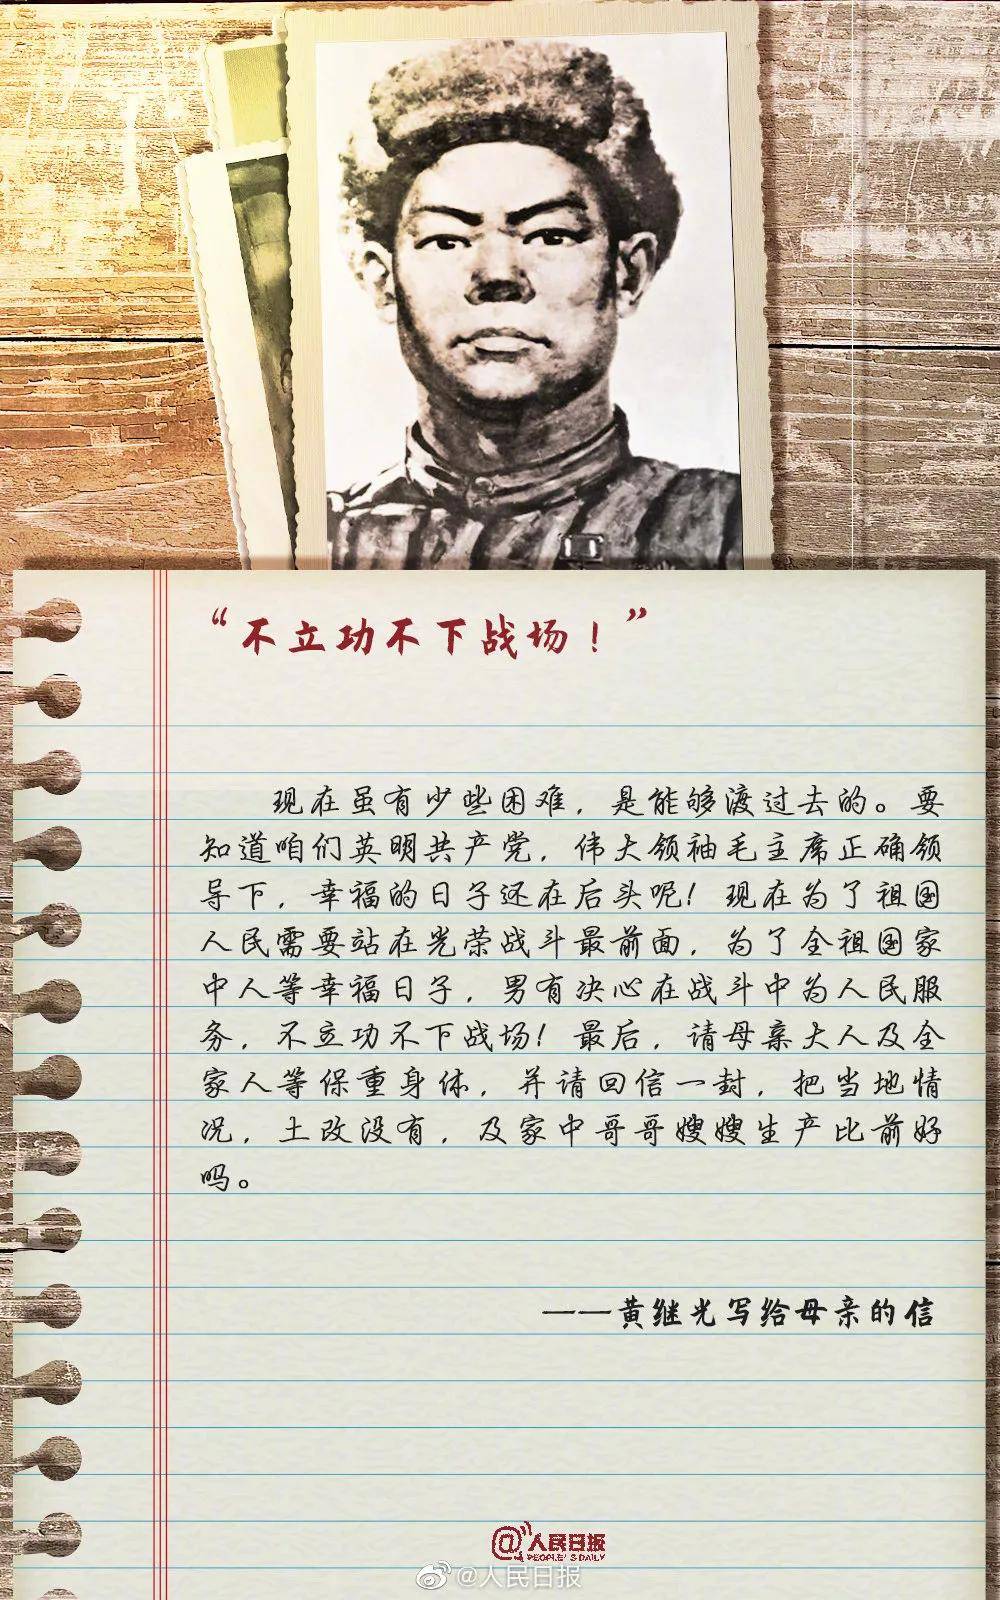 “不立功不下战场！”
现在虽有少些困难，是能够渡过去的。要
知道咱们英明共产党，伟大领袖毛主席正确领
导下，幸福的日子还在后头呢！现在为了祖国
人民需要站在光荣战斗最前面，为了全祖国家
中人等幸福日子，男有决心在战斗中为人民服
务，不立功不下战场！最后，请母亲大人及全
家人等保重身体，并请回信一封，把当地情
况，土改没有，及家中哥哥嫂嫂生产比前好
吗。
——黄继光写给母亲的信
@人民日报
PEOPLE'S DAILY
@人民日报